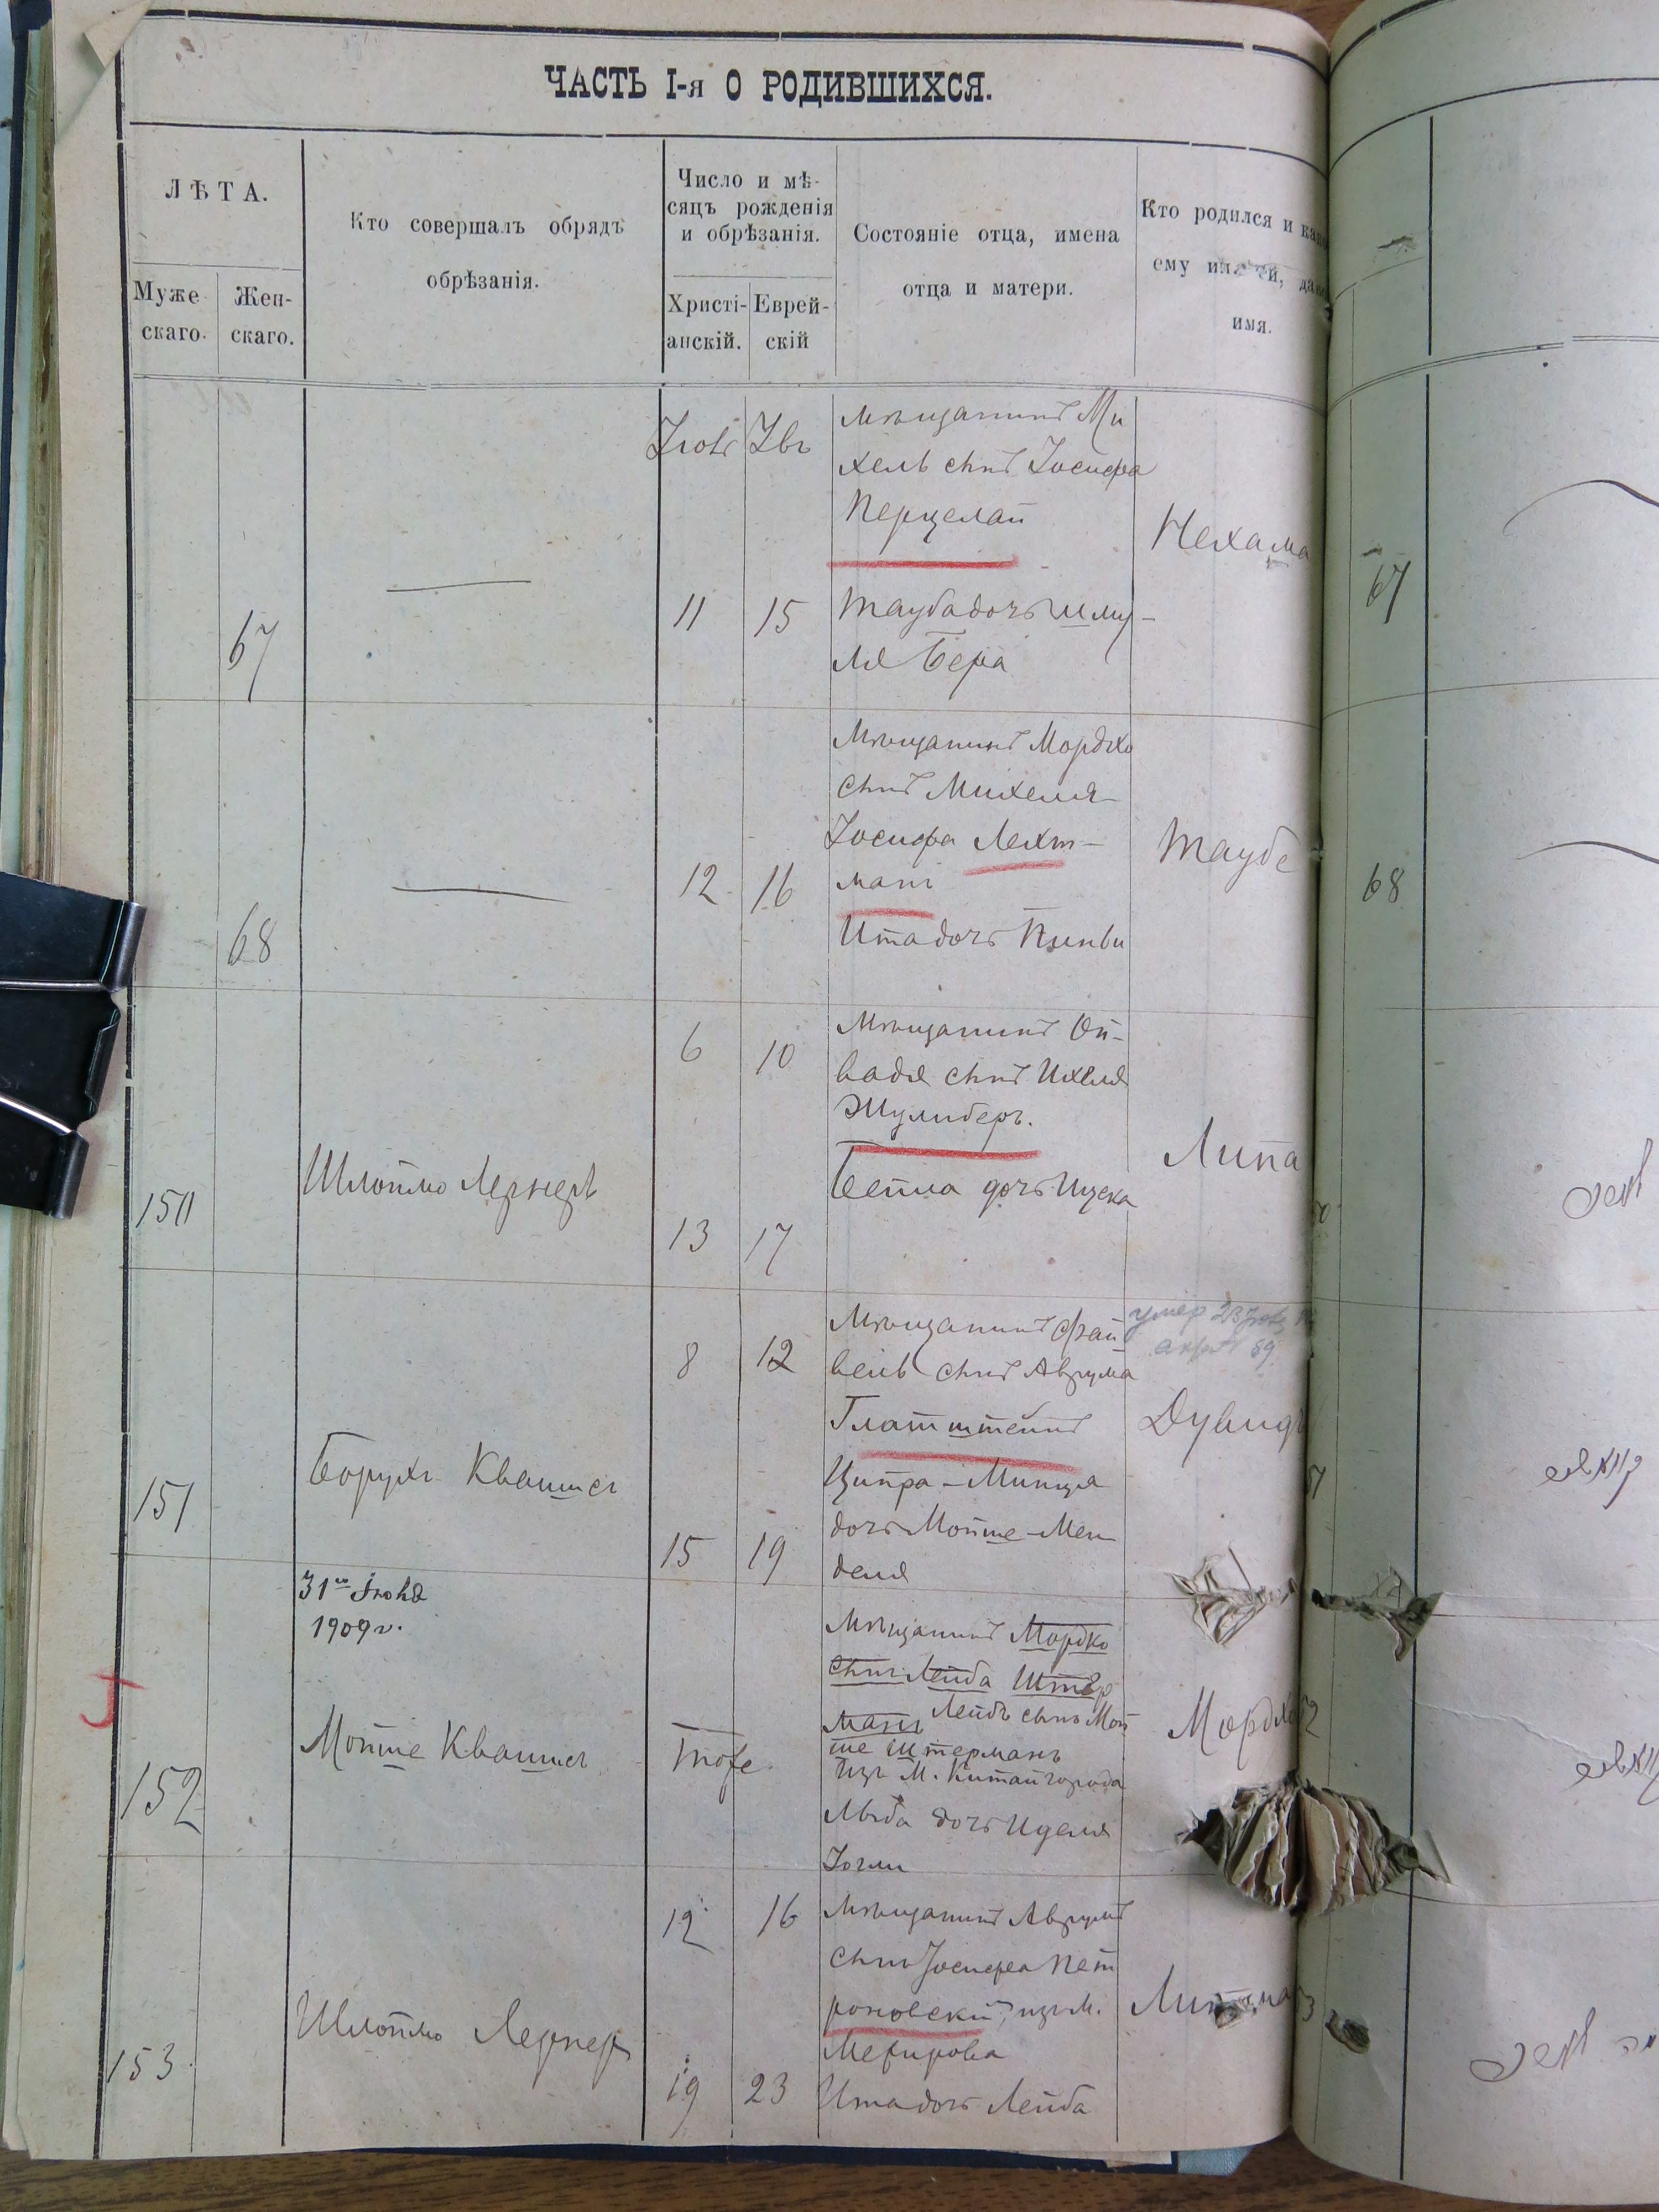 ЧАСТЬ I-я О РОДИВШИХСЯ.
ЛѢТА.
Муже
скаго.
Жен-
скаго.
Кто совершалъ обрядъ
обрѣзанія.
Число и мѣ-
сяцъ рожденія
и обрѣзанія.
Христі-
анскій.
Еврей-
скій
Состояніе отца, имена
отца и матери.
Кто родился и как
ему или ей, дан
имя.
67
11
15
Мѣщанинъ Ми
хель сынъ Іосифа
Перцелай
Таубадочь Шму-
ля Бера
Нехама
67
68
12
16
Мѣщанинъ Мордко
сынъ Михеля
Іосифа Лехт-
манъ
Итадочь
Таубе
68
150
Шлоймо Лернеръ
6
10
13
17
Мѣщанинъ Ой-
вадя сынъ Ихеля
Шулиберъ.
Бейла дочь Ицека
Липа
151
Борухъ Квашисъ
8
12
15
19
Мѣщанинъ Фай
вель сынъ Аврума
Глатштейнъ
Ципра-Минця
дочь Мойше-Мен
деля
умер
Дувидъ
152
31го Іюля
1909 г.
Мойше Квашисъ
Тоже
Мѣщанинъ Мордко
сынъ Лейба Штер
манъ Лейбъ сынъ Мой
ше Штерманъ
изъ М. Китайгорода
дочь Иделя
Мордко
153
Шлоймо Лернеръ
12
16
19
23
Мѣщанинъ Аврумъ
сынъ Іосифа Пет
роковскій, изъ М.
Межирова
Итадочь Лейба